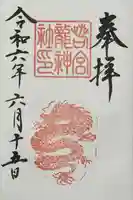 奉拝
岩宮
龍神
社印
令和六年六月十五日